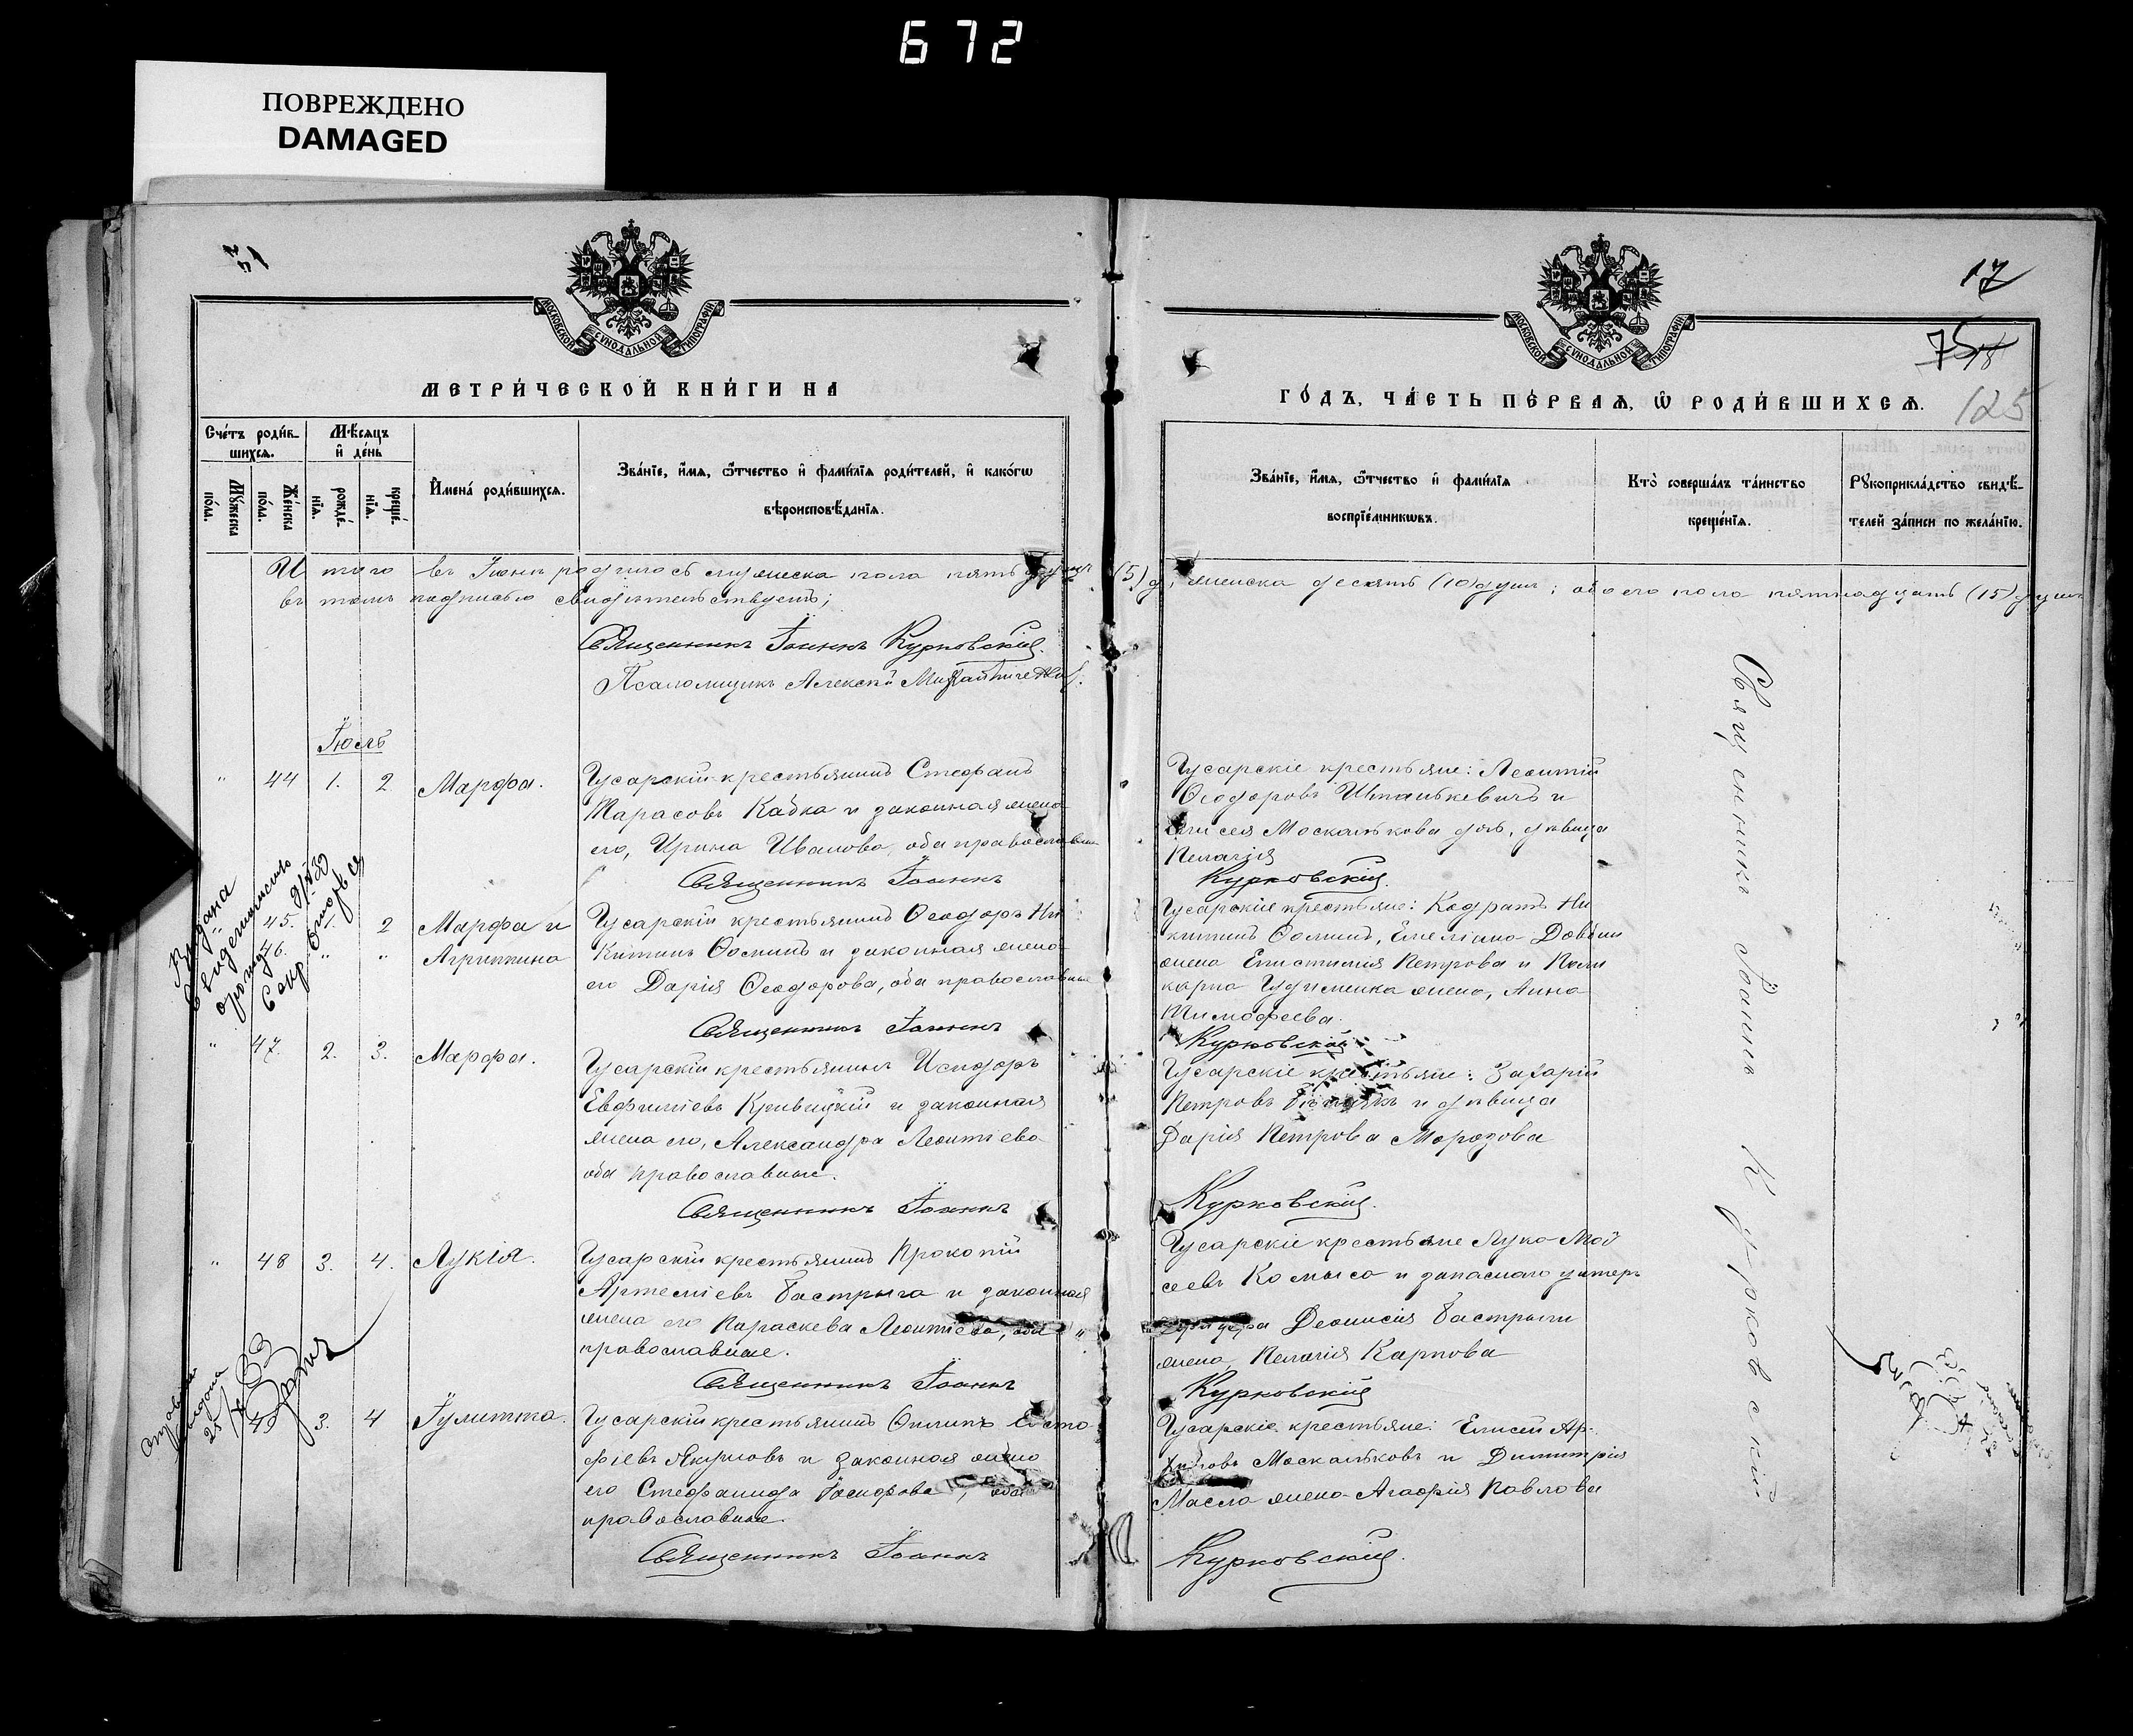 672
ПОВРЕЖДЕНО
DAMAGED
МОСКОВСКОЙ СѴНОДАЛЬНОЙ ТИПОГРАФІИ
МЕТРИ́ЧЕСКОЙ КНИ́ГИ НА
Сче́тъ роди́вшихсѧ.
Мѣ́сяцъ и҆ де́нь
Мꙋ́жеска по́ла.
Же́нска по́ла.
рожде́нїѧ.
креще́нїѧ.
И҆мена̀ роди́вшихсѧ.
Зва́нїе, и҆́мѧ, ѻ҆́тчество и҆ фами́лїѧ роди́телей, и҆ како́гѡ вѣроисповѣ́данїѧ.
Итого въ Іюнѣ родилось мужеска пола пять душъ
въ томъ подписью свидѣтельствуетъ;
Священникъ Іоаннъ Курковскій.
Псаломщикъ Алексѣй
Іюль
" 44 1. 2. Марфа. Гусарскій крестьянинъ Стефанъ
Тарасовъ Кабка и законная жена
его, Ирина Иванова, оба православные
Священникъ Іоаннъ
45. 1. 2 Марфа и Гусарскій крестьянинъ Ѳеодоръ Ни
46. " " Агриппина китинъ Ѳоминъ и законная жена
его Дарія Ѳеодорова, оба православные
Священникъ Іоаннъ
" 47. 2. 3. Марфа. Гусарскій крестьянинъ Исидоръ
Евфиміевъ Кривицкій и законная
жена его, Александра Леонтіева
оба православные.
Священникъ Іоаннъ
" 48 3. 4. Лукія. Гусарскій крестьянинъ Прокопій
Артеміевъ Бастрыга и законная
жена его Параскева Леонтіева, оба
православные.
Священникъ Іоаннъ
49 3. 4 Іулитта. Гусарскій крестьянинъ Филипъ Евста
фіевъ Якимовъ и законная жена
его Стефанида Исидорова, оба
православные.
Священникъ Іоаннъ
Выдана
17
75
125
МОСКОВСКОЙ СѴНОДАЛЬНОЙ ТИПОГРАФІИ
ГО́ДЪ, ЧА́СТЬ ПЕ́РВАѦ, Ѡ҆ РОДИ́ВШИХСѦ.
Зва́нїе, и҆́мѧ, ѻ҆́тчество и҆ фами́лїѧ воспрїе́мникѡвъ.
Кто̀ соверша́лъ та́инство креще́нїѧ.
Рꙋкоприкла́дство свидѣ́телей за́писи по жела́нїю.
(5) д, женска десять (10) душъ; обоего пола пятнадцать (15) душъ
Гусарскіе крестьяне: Леонтій
Ѳеодоровъ Штанькевичъ и
Елисея Москалькова дочь, дѣвица
Пелагія
Курковскій.
Гусарскіе крестьяне: Кодратъ Ни
китинъ Ѳоминъ, Емеліана
жена Епистимія Петрова и Поли
карпа жена, Анна
Тимофеева.
Курковскій
Гусарскіе крестьяне: Захарій
Петровъ и дѣвица
Дарія Петрова Морозова
Курковскій.
Гусарскіе крестьяне Лука Мой
сеевъ Комыса и запаснаго унтеръ
Діонисія Бастрыги
жена, Пелагія Карпова
Курковскій
Гусарскіе крестьяне: Елисей Ар-
Москальковъ и Димитрія
Масло жена Агафія Павлова
Курковскій.
Священникъ Іоаннъ Курковскій